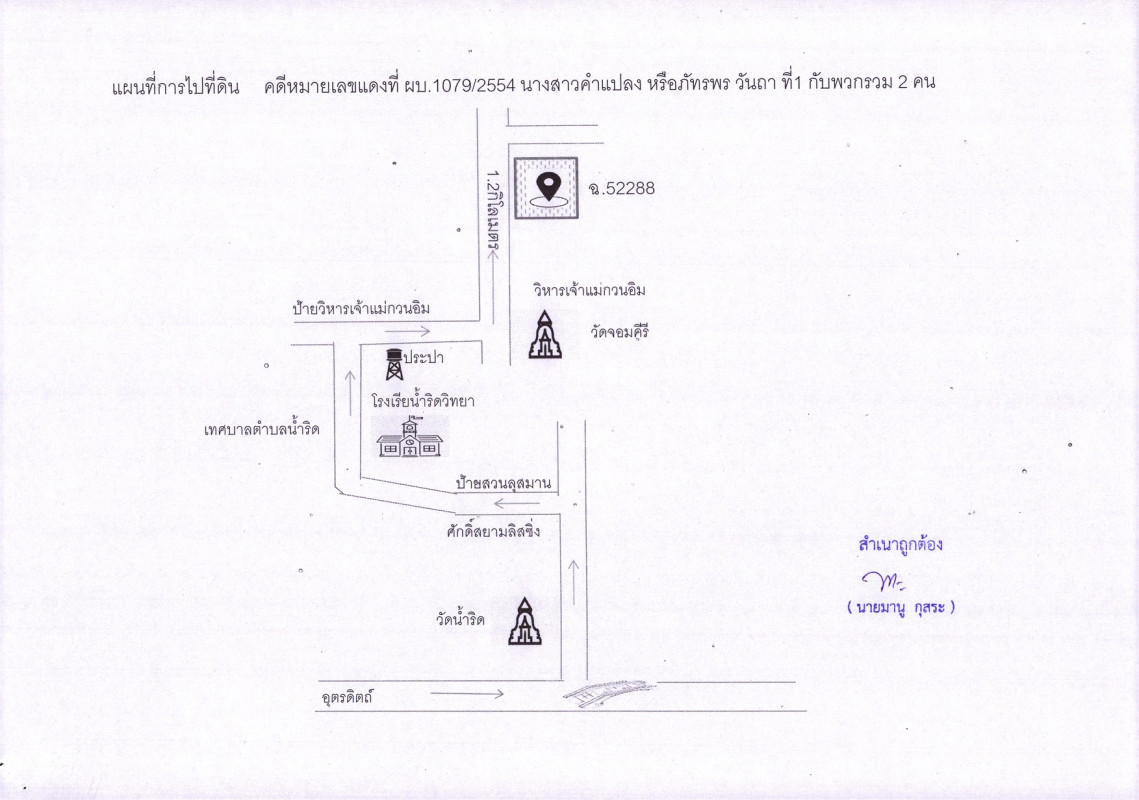 แผนที่การไปที่ดิน คดีหมายเลขแดงที่ ผบ.1079/2554 นางสาวคำแปลง หรือภัทรพร วันถา ที่1 กับพวกรวม 2 คน
1.2กิโลเมตร
ฉ.52288
วิหารเจ้าแม่กวนอิม
ป้ายวิหารเจ้าแม่กวนอิม
วัดจอมคีรี
ประปา
โรงเรียน้ำริดวิทยา
เทศบาลตำบลน้ำริด
ป้ายสวนลุสมาน
ศักดิ์สยามลิสซิ่ง
สำเนาถูกต้อง
( นายมานู กุสระ )
วัดน้ำริด
อุตรดิตถ์